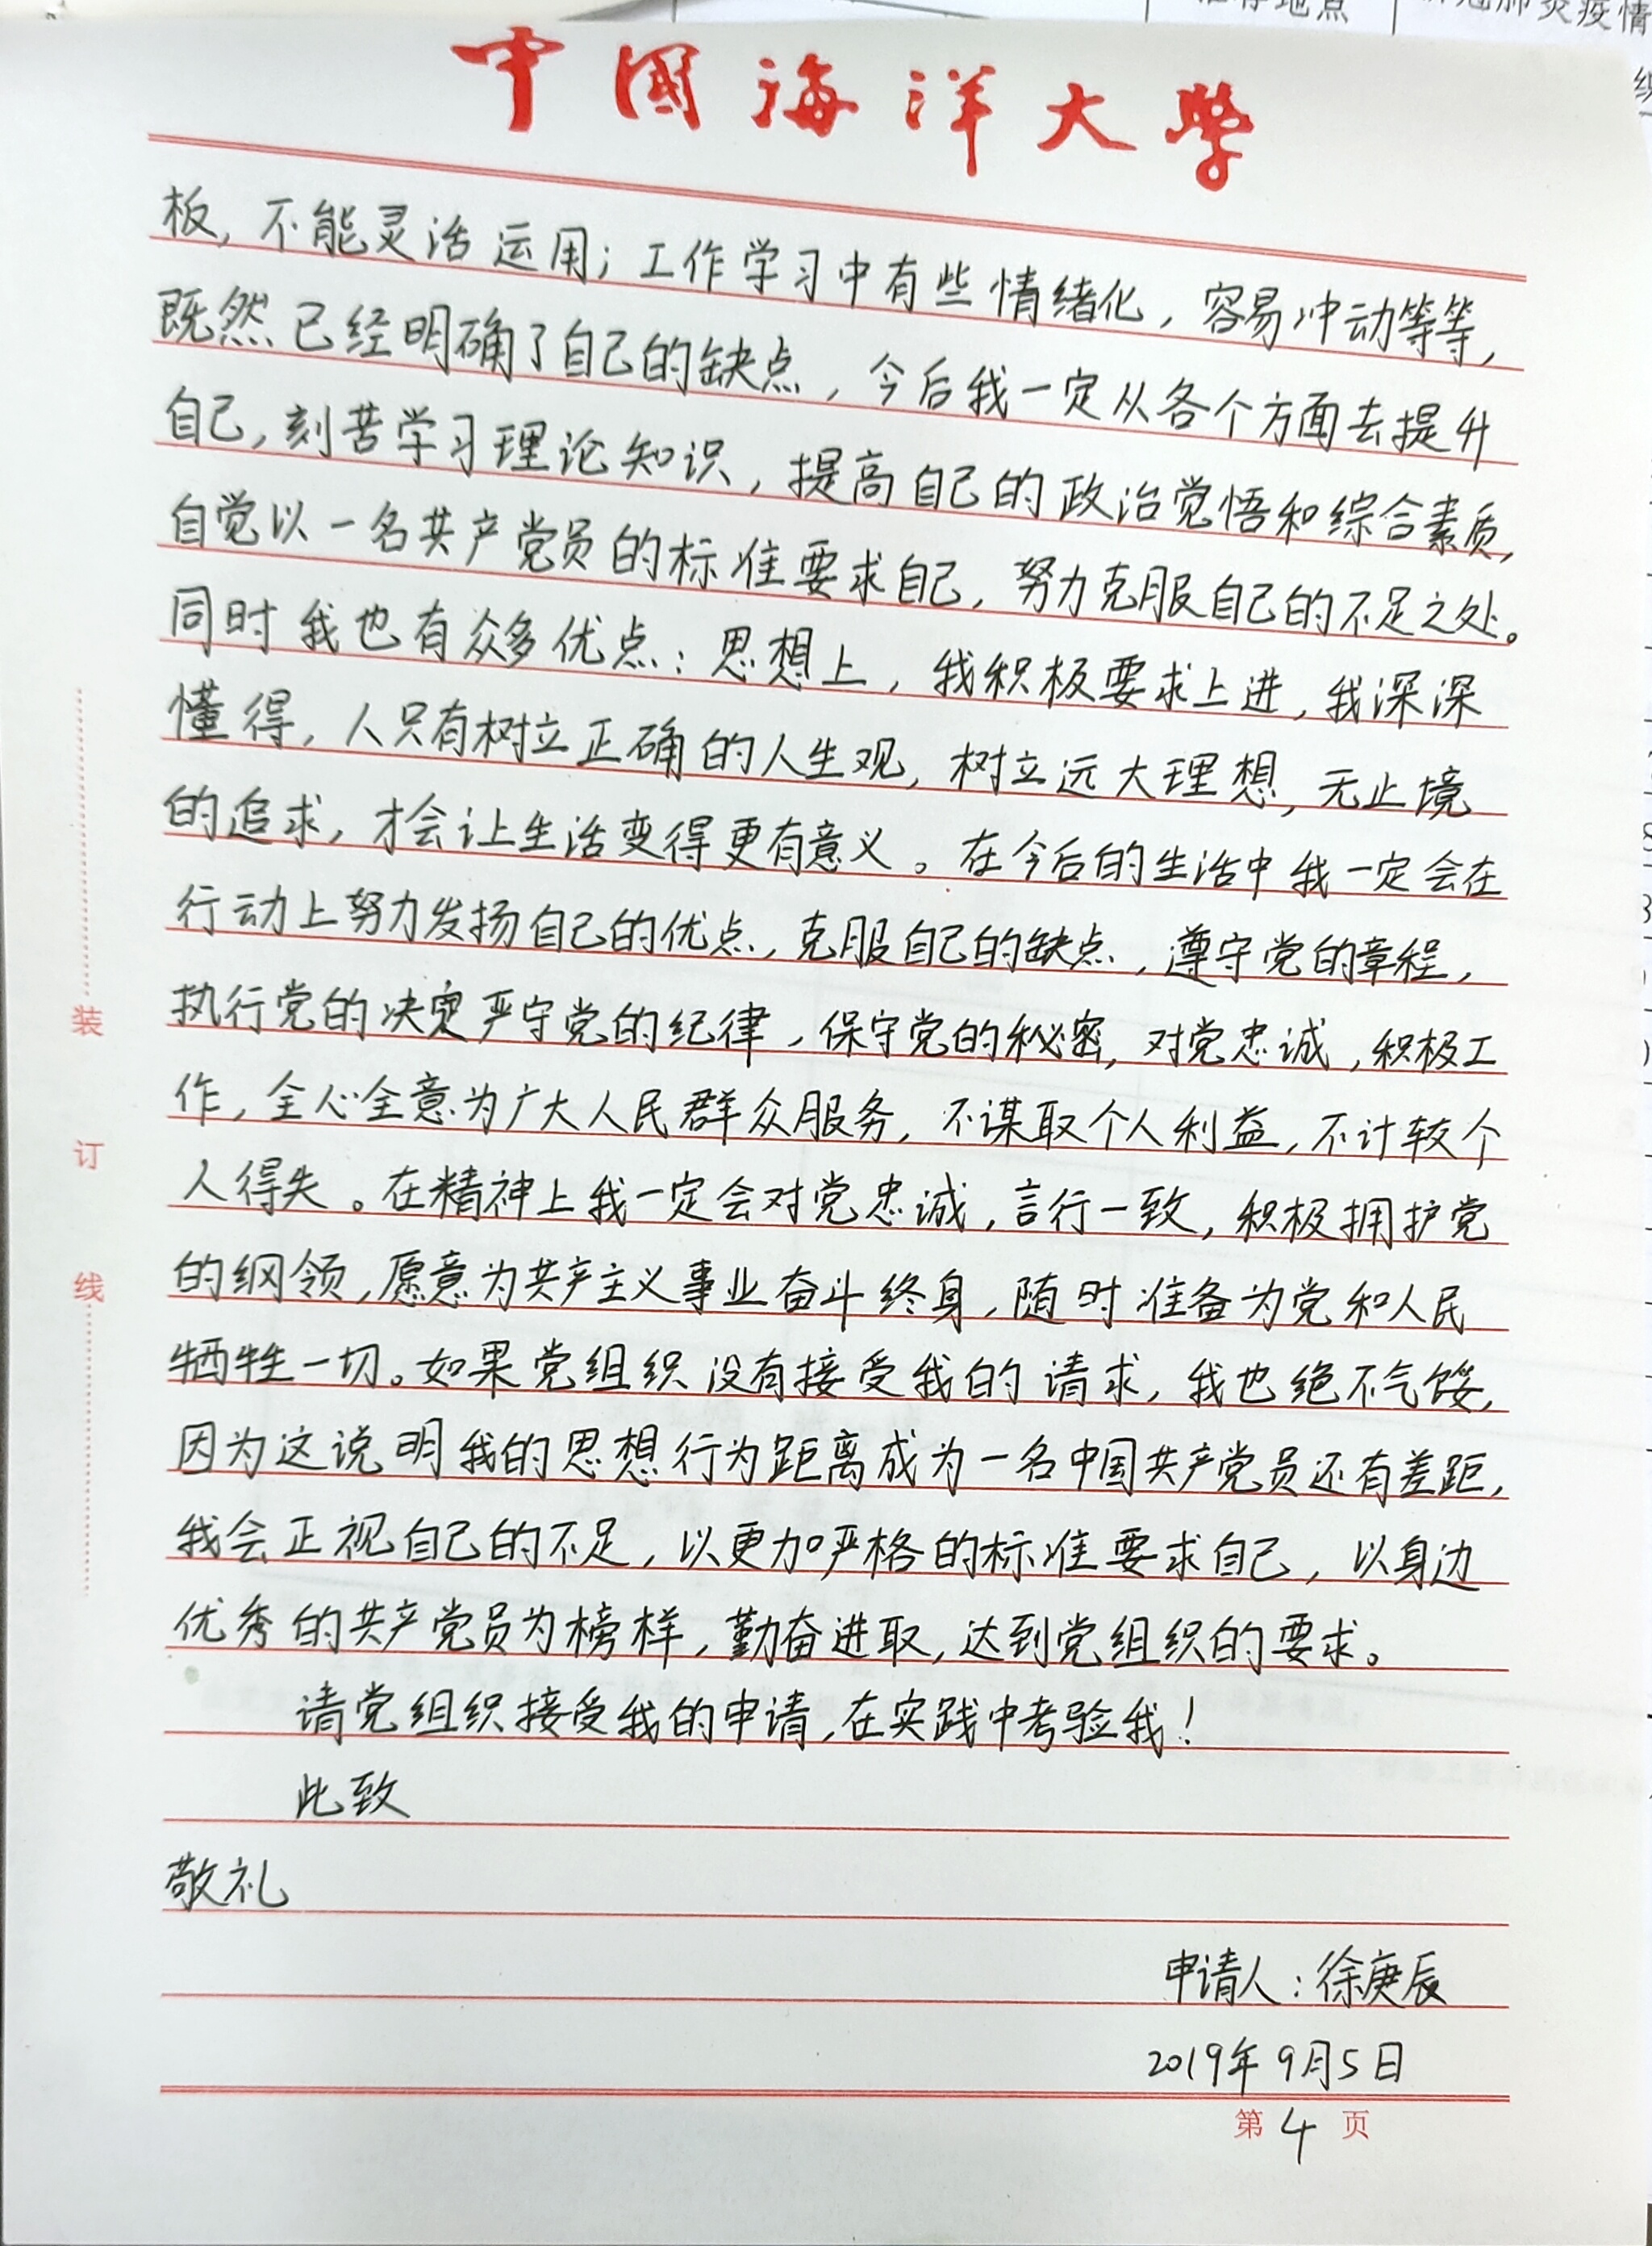 中国海洋大学
板，不能灵活运用；工作学习中有些情绪化，容易冲动等等，
既然已经明确了自己的缺点，今后我一定从各个方面去提升
自己，刻苦学习理论知识，提高自己的政治觉悟和综合素质，
自觉以一名共产党员的标准要求自己，努力克服自己的不足之处。
同时我也有众多优点：思想上，我积极要求上进，我深深
懂得，人只有树立正确的人生观，树立远大理想，无止境
的追求，才会让生活变得更有意义。在今后的生活中我一定会在
行动上努力发扬自己的优点，克服自己的缺点，遵守党的章程，
执行党的决定严守党的纪律，保守党的秘密，对党忠诚，积极工
作，全心全意为广大人民群众服务，不谋取个人利益，不计较个
人得失。在精神上我一定会对党忠诚，言行一致，积极拥护党
的纲领，愿意为共产主义事业奋斗终身，随时准备为党和人民
牺牲一切。如果党组织没有接受我的请求，我也绝不气馁，
因为这说明我的思想行为距离成为一名中国共产党员还有差距，
我会正视自己的不足，以更加严格的标准要求自己，以身边
优秀的共产党员为榜样，勤奋进取，达到党组织的要求。
请党组织接受我的申请，在实践中考验我！
此致
敬礼
申请人：徐庚辰
2019年9月5日
第4页
装
订
线